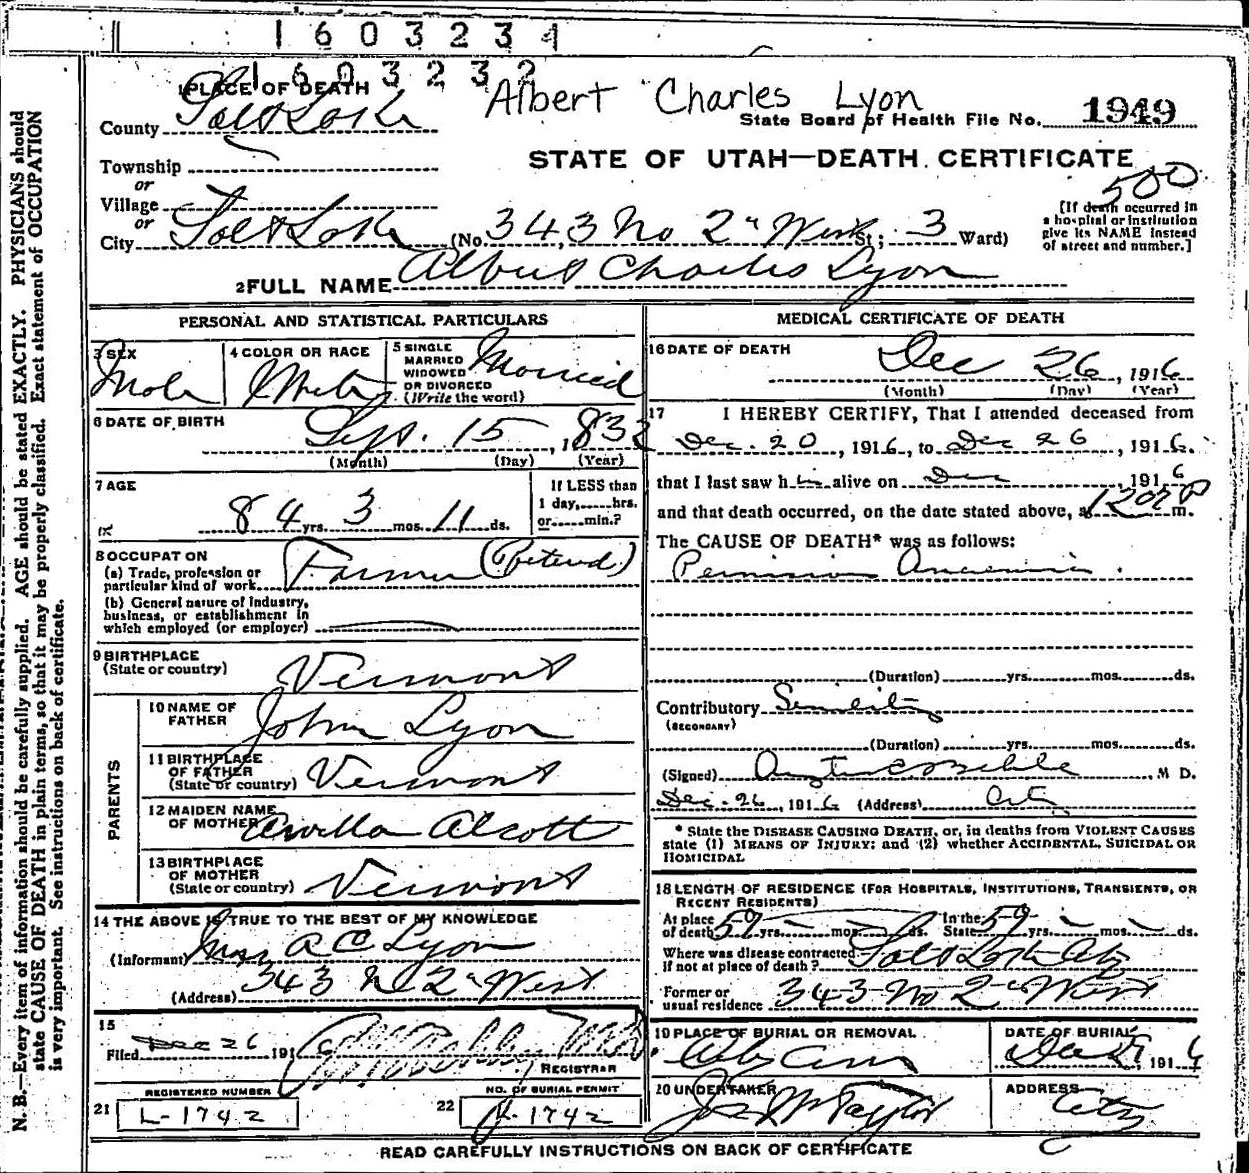 1603234
1603232
1 PLACE OF DEATH
Albert Charles Lyon
County Salt Lake
State Board of Health File No. 1949
Township
STATE OF UTAH—DEATH CERTIFICATE
or
Village
500
or
City Salt Lake (No. 343 No 2" West St; 3 Ward)
[If death occurred in
a hospital or institution
give its NAME instead
of street and number.]
2 FULL NAME Albert Charles Lyon
PERSONAL AND STATISTICAL PARTICULARS
3 SEX
Male
4 COLOR OR RACE
White
5 SINGLE
MARRIED
WIDOWED
OR DIVORCED
(Write the word)
Married
6 DATE OF BIRTH
Sept. 15, 1832
(Month) (Day) (Year)
7 AGE
84 yrs. 3 mos. 11 ds.
If LESS than
1 day,......hrs.
or......min.?
8 OCCUPATON
(a) Trade, profession or
particular kind of work Farmer (Retired)
(b) General nature of Industry,
business, or establishment in
which employed (or employer)
9 BIRTHPLACE
(State or country) Vermont
PARENTS
10 NAME OF
FATHER John Lyon
11 BIRTHPLACE
OF FATHER
(State or country) Vermont
12 MAIDEN NAME
OF MOTHER Arvilla Alcott
13 BIRTHPLACE
OF MOTHER
(State or country) Vermont
14 THE ABOVE IS TRUE TO THE BEST OF MY KNOWLEDGE
(Informant) Mrs A C Lyon
(Address) 343 N 2" West
15
Filed Dec 26 191
REGISTRAR
REGISTERED NUMBER
21 L-1742
NO. OF BURIAL PERMIT
22 1742
MEDICAL CERTIFICATE OF DEATH
16 DATE OF DEATH
Dec 26, 1916
(Month) (Day) (Year)
17 I HEREBY CERTIFY, That I attended deceased from
Dec. 20, 1916, to Dec 26, 1916.
that I last saw him alive on Dec 1916
and that death occurred, on the date stated above, at 1207 P m.
The CAUSE OF DEATH* was as follows:
Pernicious Anaemia.
(Duration) yrs. mos. ds.
Contributory Senility
(SECONDARY)
(Duration) yrs. mos. ds.
(Signed) M D.
Dec. 26, 1916 (Address) City
* State the DISEASE CAUSING DEATH, or, in deaths from VIOLENT CAUSES
state (1) MEANS OF INJURY; and (2) whether ACCIDENTAL, SUICIDAL OR
HOMICIDAL
18 LENGTH OF RESIDENCE (FOR HOSPITALS, INSTITUTIONS, TRANSIENTS, OR
RECENT RESIDENTS)
At place
of death 59 yrs. mos. ds. In the
State 59 yrs. mos. ds.
Where was disease contracted
if not at place of death? Salt Lake City
Former or
usual residence 343 No 2" West
19 PLACE OF BURIAL OR REMOVAL
City Cem
DATE OF BURIAL
Dec 29 1916
20 UNDERTAKER
Jos Wm Taylor
ADDRESS
City
READ CAREFULLY INSTRUCTIONS ON BACK OF CERTIFICATE
N. B.—Every item of information should be carefully supplied. AGE should be stated EXACTLY. PHYSICIANS should
state CAUSE OF DEATH in plain terms, so that it may be properly classified. Exact statement of OCCUPATION
is very important. See instructions on back of certificate.